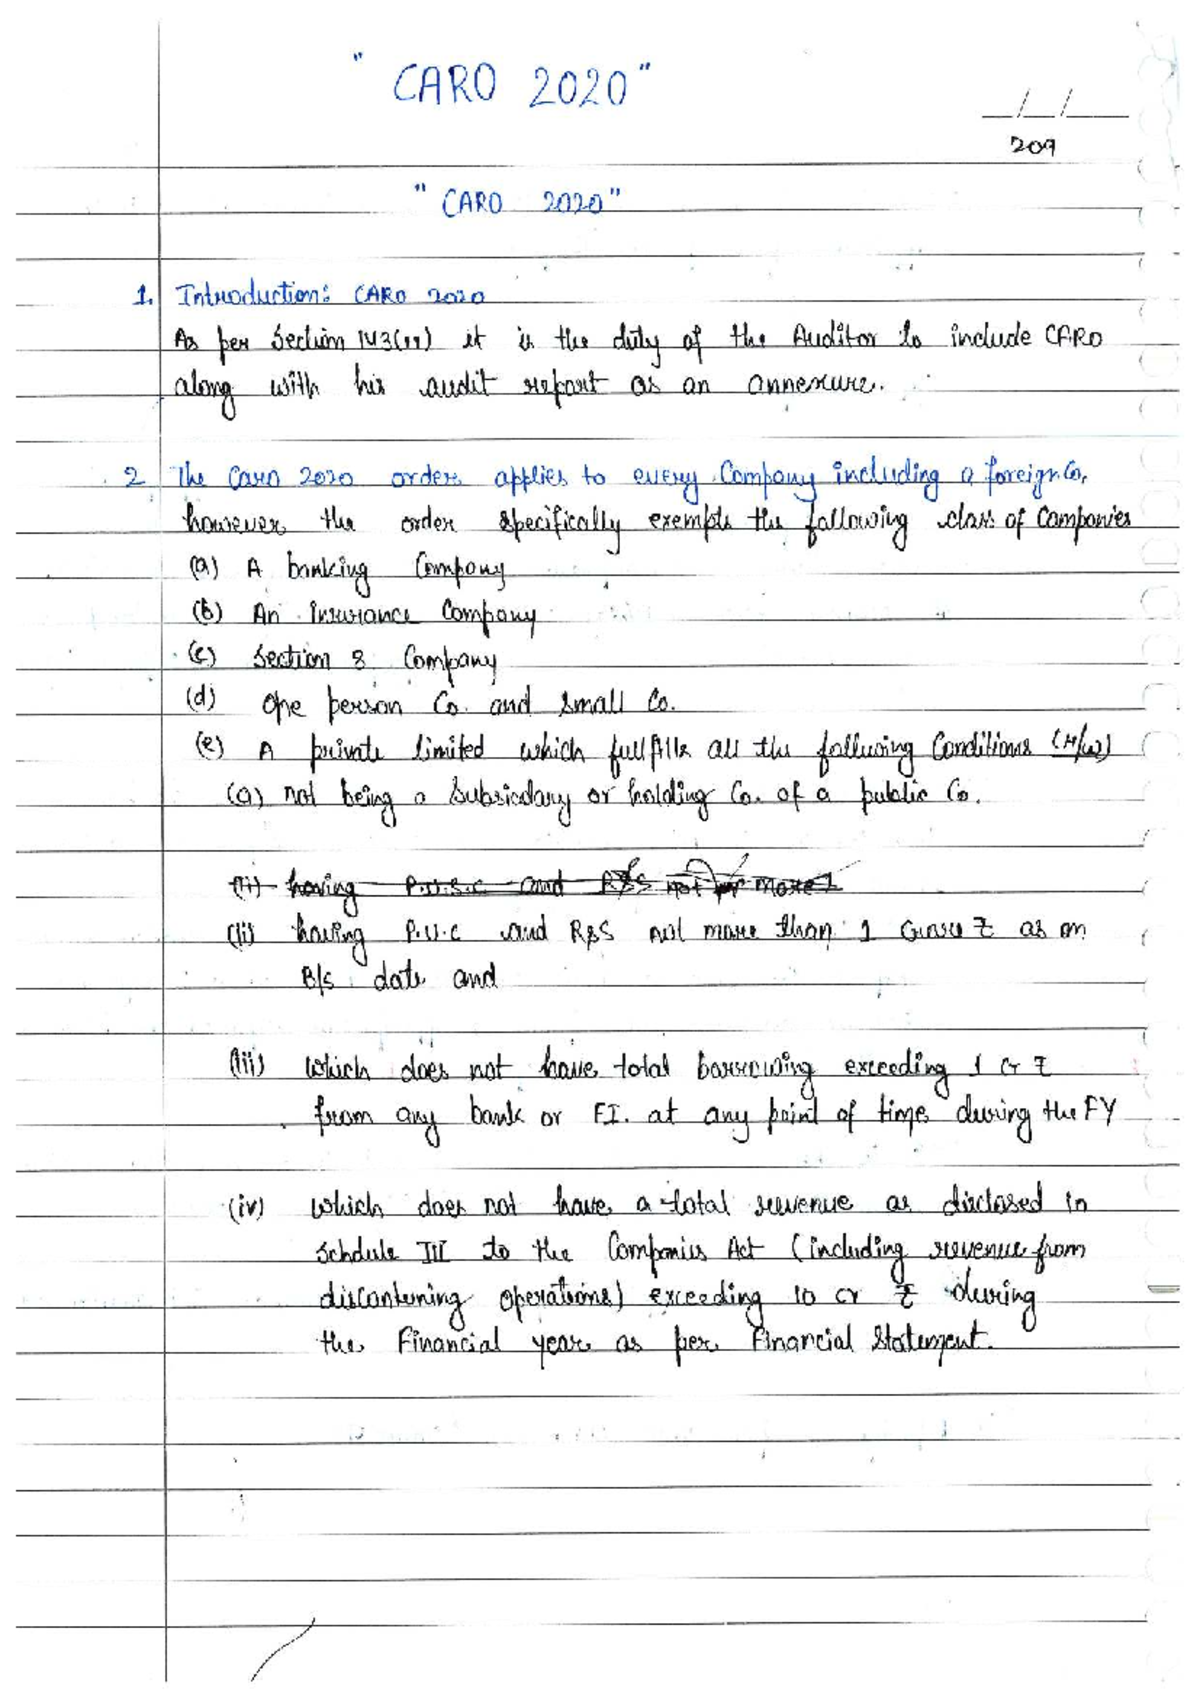 " CARO 2020 "
_/_/_
209
" CARO 2020 "
1. Introduction: CARO 2020
As per Section 143(11) it is the duty of the Auditor to include CARO
along with his audit report as an annexure.
2 The Caro 2020 orders applies to every Company including a foreign Co,
however the order specifically exempts the following class of Companies
(a) A banking Company
(b) An Insurance Company
(c) Section 8 Company
(d) One person Co. and Small Co.
(e) A private limited which fullfills all the following Conditions
(a) not being a Subsicdary or holding Co. of a public Co.
(ii) having P.U.S.C and R&S not more
(ii) having P.U.C and R&S not more than 1 Crore ₹ as on
B/S date and
(iii) which does not have total borrowing exceeding 1 Cr ₹
from any bank or F.I. at any point of time during the FY
(iv) which does not have a total revenue as disclosed in
Schdule III to the Companies Act (including revenue from
discontuning operations) exceeding 10 cr ₹ during
the Financial year as per Financial Statement.